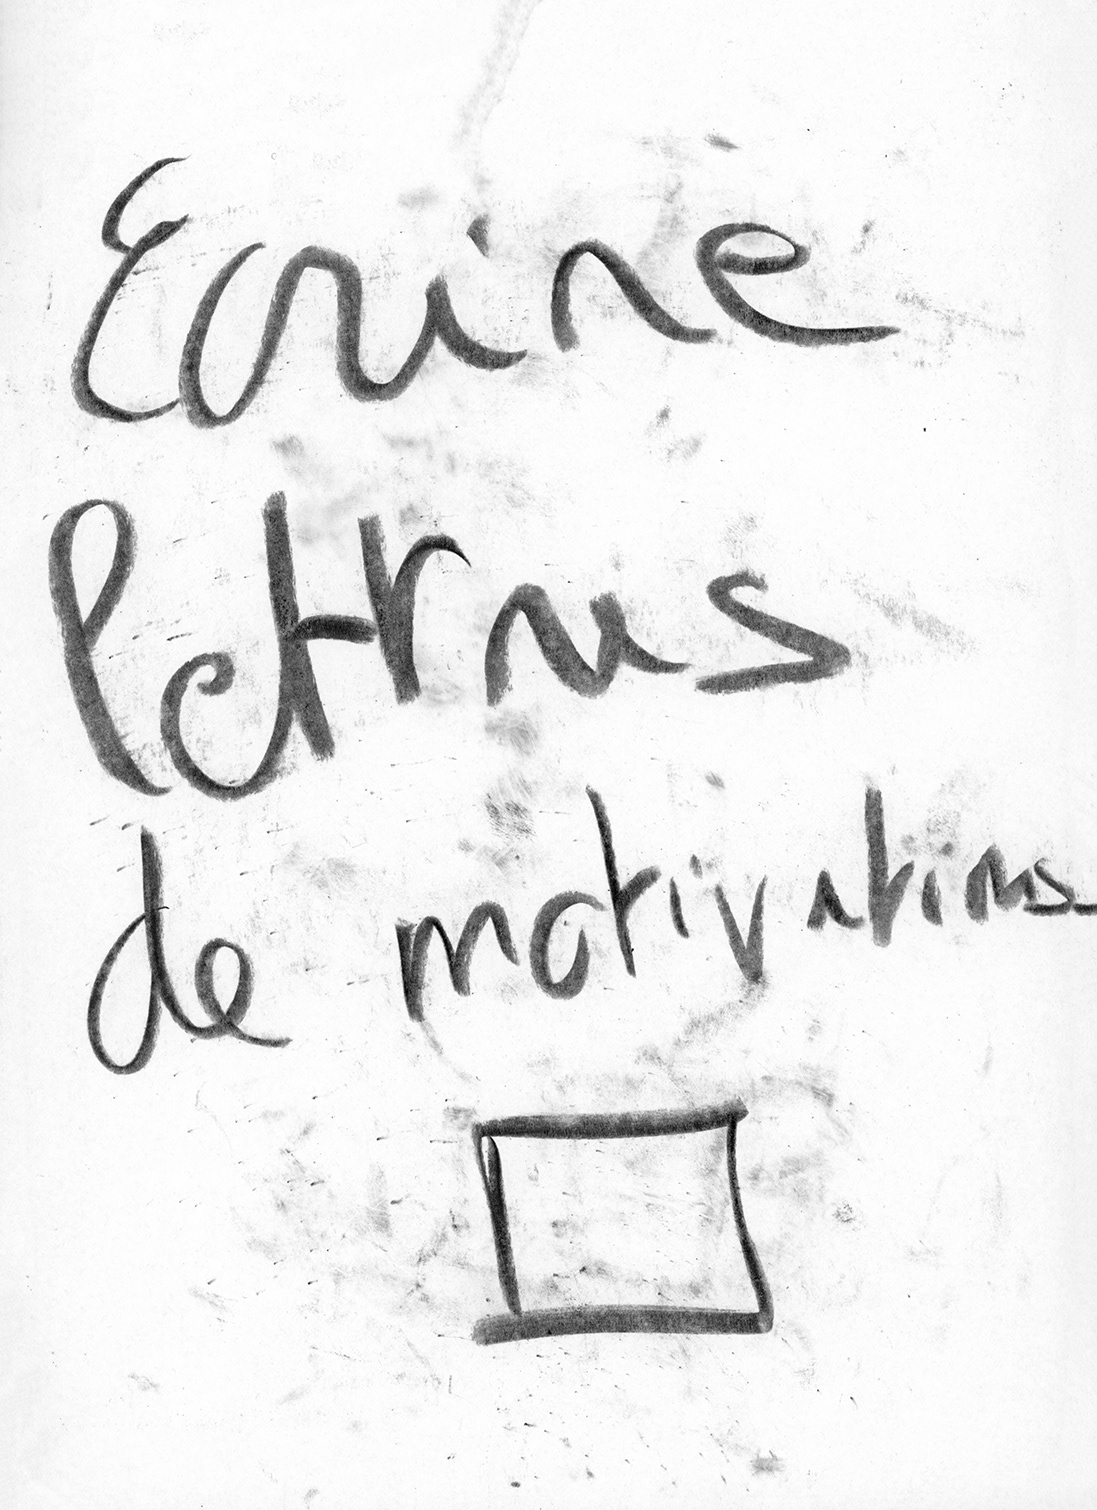 Ecrire
lettres
de motivations